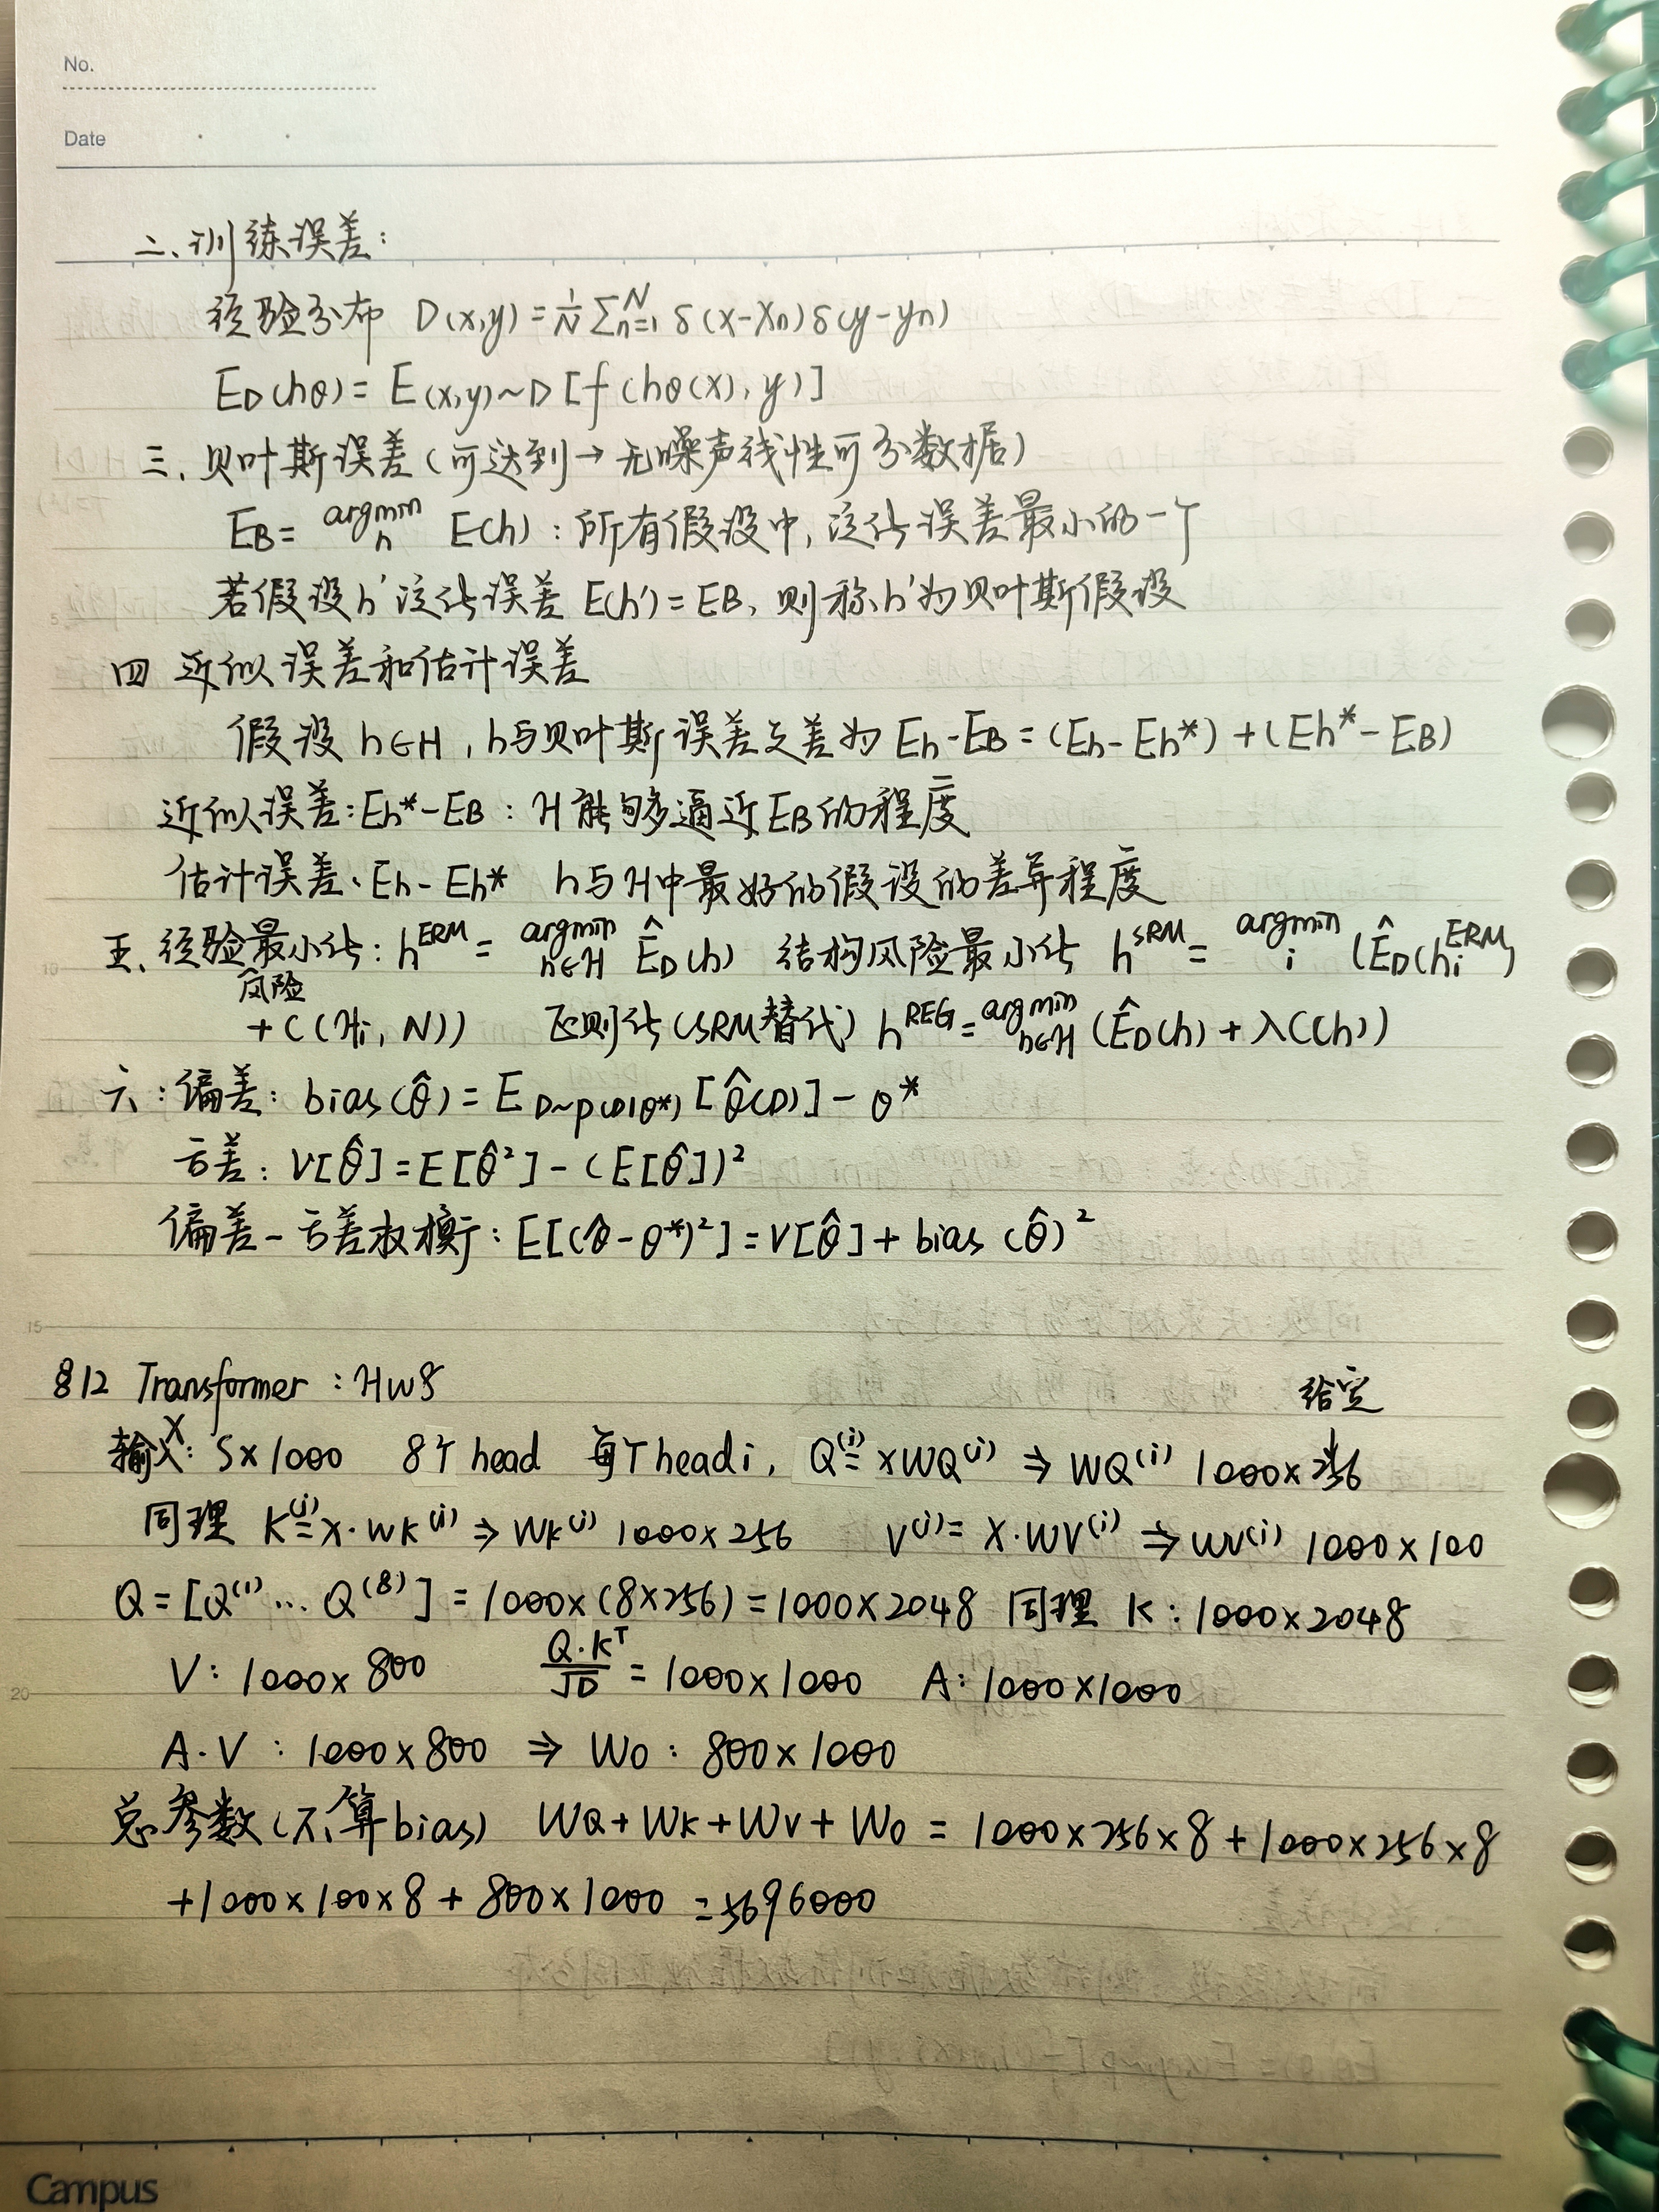 No.
Date
二、训练误差:
经验分布 D(x,y) = 1/N ∑ₙ₌₁ᴺ δ(x-xn)δ(y-yn)
ED(hθ) = E(x,y)~D [f(hθ(x), y)]
三、贝叶斯误差(可达到→无噪声线性可分数据)
EB = argmin h E(h) : 所有假设中, 泛化误差最小的一个
若假设h'泛化误差 E(h') = EB, 则称h'为贝叶斯假设
四 近似误差和估计误差
假设 h∈H, h与贝叶斯误差之差为 Eh-EB = (Eh-Eh*) + (Eh*-EB)
近似误差: Eh*-EB : H能够逼近EB的程度
估计误差、Eh-Eh* h与H中最好的假设的差异程度
五、经验风险最小化: h^ERM = argmin h∈H ÊD(h) 结构风险最小化 h^SRM = argmin i (ÊD(hi^ERM)
+ C(Hi, N)) 正则化(SRM替代) h^REG = argmin h∈H (ÊD(h) + λC(h))
六: 偏差: bias(θ̂) = E D~p(D|θ*) [θ̂(D)] - θ*
方差: V[θ̂] = E[θ̂²] - (E[θ̂])²
偏差-方差权衡: E[(θ̂-θ*)²] = V[θ̂] + bias(θ̂)²
§12 Transformer : HW8
给定
输入X: S×1000 8个head 每个head i, Q⁽ⁱ⁾ = XWQ⁽ⁱ⁾ ⇒ WQ⁽ⁱ⁾ 1000×256
同理 K⁽ⁱ⁾ = X·WK⁽ⁱ⁾ ⇒ WK⁽ⁱ⁾ 1000×256 V⁽ⁱ⁾ = X·WV⁽ⁱ⁾ ⇒ WV⁽ⁱ⁾ 1000×100
Q = [Q⁽¹⁾ ... Q⁽⁸⁾] = 1000×(8×256) = 1000×2048 同理 K: 1000×2048
V: 1000×800 Q·Kᵀ/√D = 1000×1000 A: 1000×1000
A·V : 1000×800 ⇒ WO : 800×1000
总参数(不算bias) WQ+WK+WV+WO = 1000×256×8 + 1000×256×8
+1000×100×8 + 800×1000 = 5696000
5
10
15
20
Campus